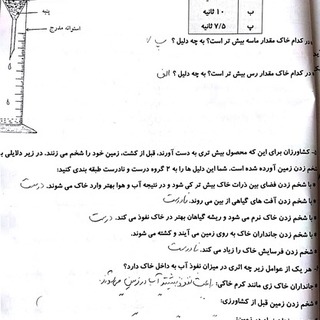 پنبه
استوانه مدرج
ب ۱۰ ثانیه
پ ۷/۵ ثانیه
در کدام خاک مقدار ماسه بیش تر است؟ به چه دلیل ؟ پ
در کدام خاک مقدار رس بیش تر است؟ به چه دلیل ؟ الف
کشاورزان برای این که محصول بیش تری به دست آورند، قبل از کشت، زمین خود را شخم می زنند. در زیر دلایلی
خم زدن زمین آورده شده است. شما این دلیل ها را به ۲ گروه درست و نادرست طبقه بندی کنید:
با شخم زدن فضای بین ذرات خاک بیش تر کی شود و در نتیجه آب و هوا بهتر وارد خاک می شوند. درست
با شخم زدن آفت های گیاهی از بین می روند. نادرست
با شخم زدن خاک نرم می شود و ریشه گیاهان بهتر در خاک نفوذ می کند. درست
با شخم زدن جانداران خاک به روی زمین می آیند و کشته می شوند.
شخم زدن فرسایش خاک را زیاد می کند. نادرست
هر یک از عوامل زیر چه اثری در میزان نفوذ آب به داخل خاک دارد؟
جانداران خاک زی مانند کرم خاکی: باعث نفوذ بیشتر آب در زمین میشود
شخم زدن زمین قبل از کشاورزی: